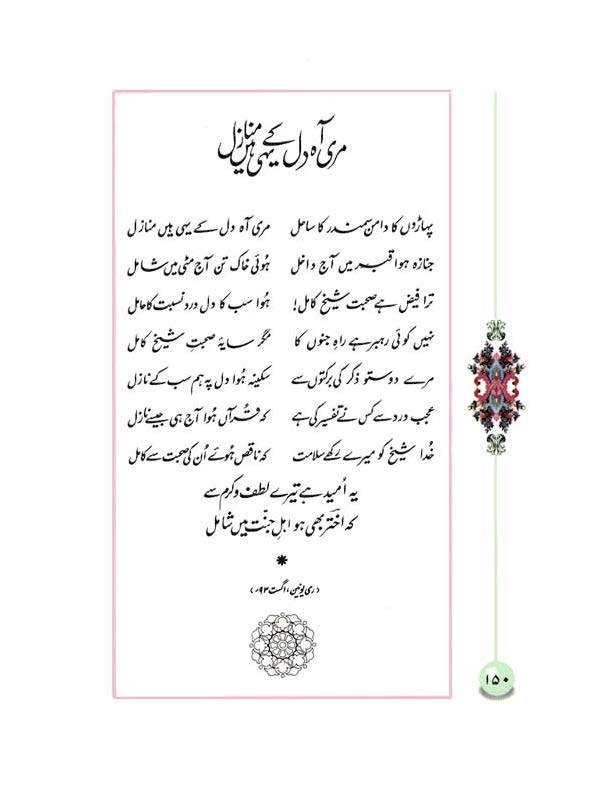 مری آہ دل کے یہی ہیں منازل
پہاڑوں کا دامن سمندر کا ساحل مری آہ دل کے یہی ہیں منازل
جنازہ ہوا قبر میں آج داخل ہُوئی خاک تن آج مٹی میں شامل
ترا فیض ہے صحبت شیخ کامل! ہُوا سب کا دل درد نسبت کا حامل
نہیں کوئی رہبر ہے راہِ جنوں کا مگر سایۂ صحبتِ شیخ کامل
مرے دوستو ذکر کی برکتوں سے سکینہ ہُوا دل پہ ہم سب کے نازل
عجب درد سے کس نے تفسیر کی ہے کہ قرآں ہُوا آج ہی جیسے نازل
خُدا شیخ کو میرے رکھے سلامت کہ ناقص ہُوئے اُن کی صحبت سے کامل
یہ اُمید ہے تیرے لطف و کرم سے
کہ اختؔر بھی ہو اہلِ جنّت میں شامل
(ری یونین، اگست ۹۳ء)
۱۵۰